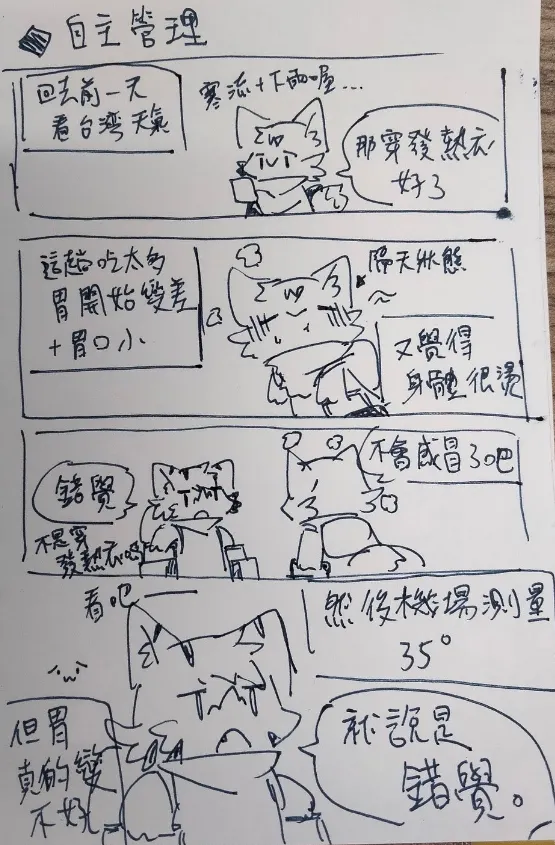 自主管理
回去前一天
看台湾天氣
寒流+下雨喔...
那穿發熱衣
好了
這趟吃太多
胃開始變差
+胃口小
隔天狀態
又覺得
身體很燙
不會感冒了吧
錯覺
不是穿
發熱衣嗎
看吧
然後機場測量
35°
就說是
錯覺。
但胃
真的變
不好